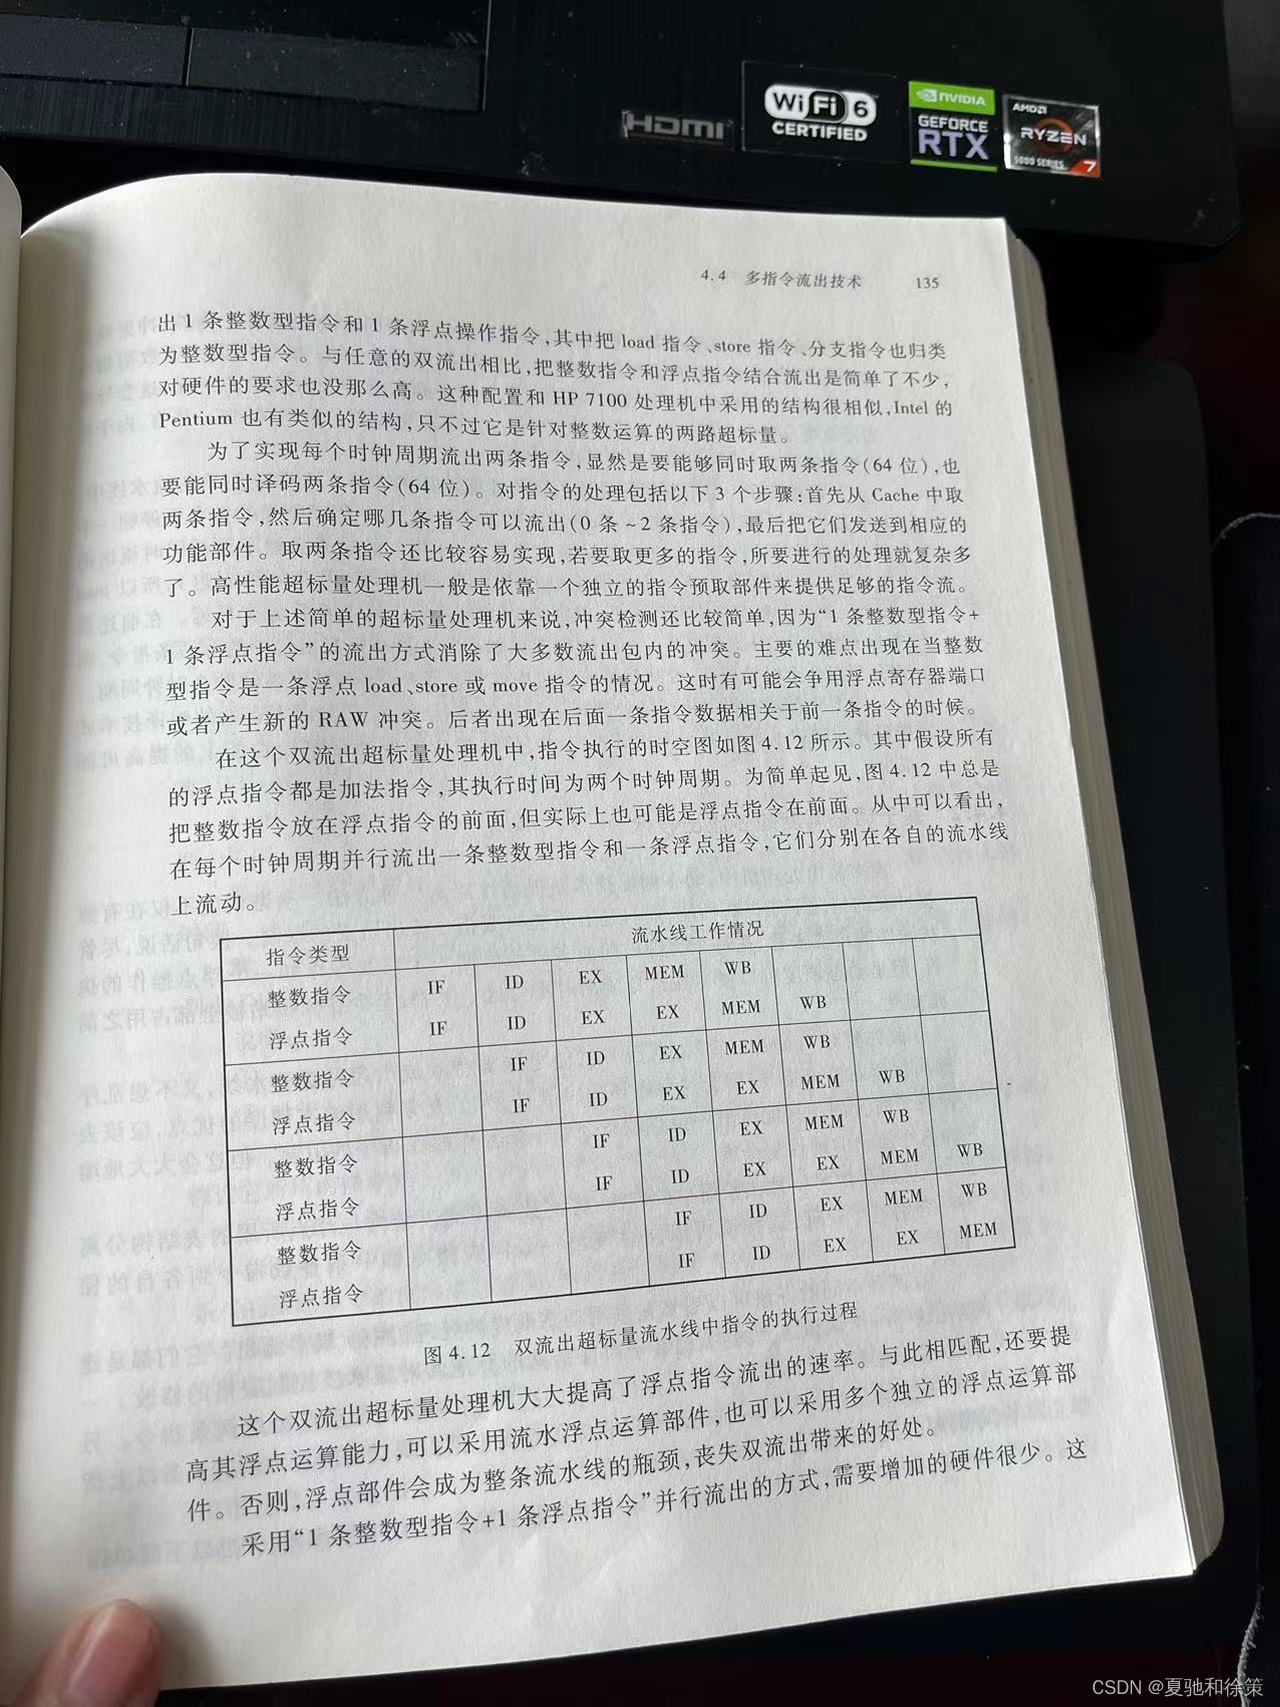 HDMI
Wi Fi 6
CERTIFIED
NVIDIA
GEFORCE
RTX
AMD
RYZEN
5000 SERIES
7
4.4 多指令流出技术 135
出 1 条整数型指令和 1 条浮点操作指令,其中把 load 指令、store 指令、分支指令也归类
为整数型指令。与任意的双流出相比,把整数指令和浮点指令结合流出是简单了不少,
对硬件的要求也没那么高。这种配置和 HP 7100 处理机中采用的结构很相似,Intel 的
Pentium 也有类似的结构,只不过它是针对整数运算的两路超标量。
为了实现每个时钟周期流出两条指令,显然是要能够同时取两条指令(64 位),也
要能同时译码两条指令(64 位)。对指令的处理包括以下 3 个步骤:首先从 Cache 中取
两条指令,然后确定哪几条指令可以流出(0 条 ~2 条指令),最后把它们发送到相应的
功能部件。取两条指令还比较容易实现,若要取更多的指令,所要进行的处理就复杂多
了。高性能超标量处理机一般是依靠一个独立的指令预取部件来提供足够的指令流。
对于上述简单的超标量处理机来说,冲突检测还比较简单,因为“1 条整数型指令+
1 条浮点指令”的流出方式消除了大多数流出包内的冲突。主要的难点出现在当整数
型指令是一条浮点 load、store 或 move 指令的情况。这时有可能会争用浮点寄存器端口
或者产生新的 RAW 冲突。后者出现在后面一条指令数据相关于前一条指令的时候。
在这个双流出超标量处理机中,指令执行的时空图如图 4.12 所示。其中假设所有
的浮点指令都是加法指令,其执行时间为两个时钟周期。为简单起见,图 4.12 中总是
把整数指令放在浮点指令的前面,但实际上也可能是浮点指令在前面。从中可以看出,
在每个时钟周期并行流出一条整数型指令和一条浮点指令,它们分别在各自的流水线
上流动。
指令类型 流水线工作情况
整数指令 IF ID EX MEM WB
浮点指令 IF ID EX EX MEM WB
整数指令 IF ID EX MEM WB
浮点指令 IF ID EX EX MEM WB
整数指令 IF ID EX MEM WB
浮点指令 IF ID EX EX MEM WB
整数指令 IF ID EX MEM WB
浮点指令 IF ID EX EX MEM
图 4.12 双流出超标量流水线中指令的执行过程
这个双流出超标量处理机大大提高了浮点指令流出的速率。与此相匹配,还要提
高其浮点运算能力,可以采用流水浮点运算部件,也可以采用多个独立的浮点运算部
件。否则,浮点部件会成为整条流水线的瓶颈,丧失双流出带来的好处。
采用“1 条整数型指令+1 条浮点指令”并行流出的方式,需要增加的硬件很少。这
CSDN @夏驰和徐策